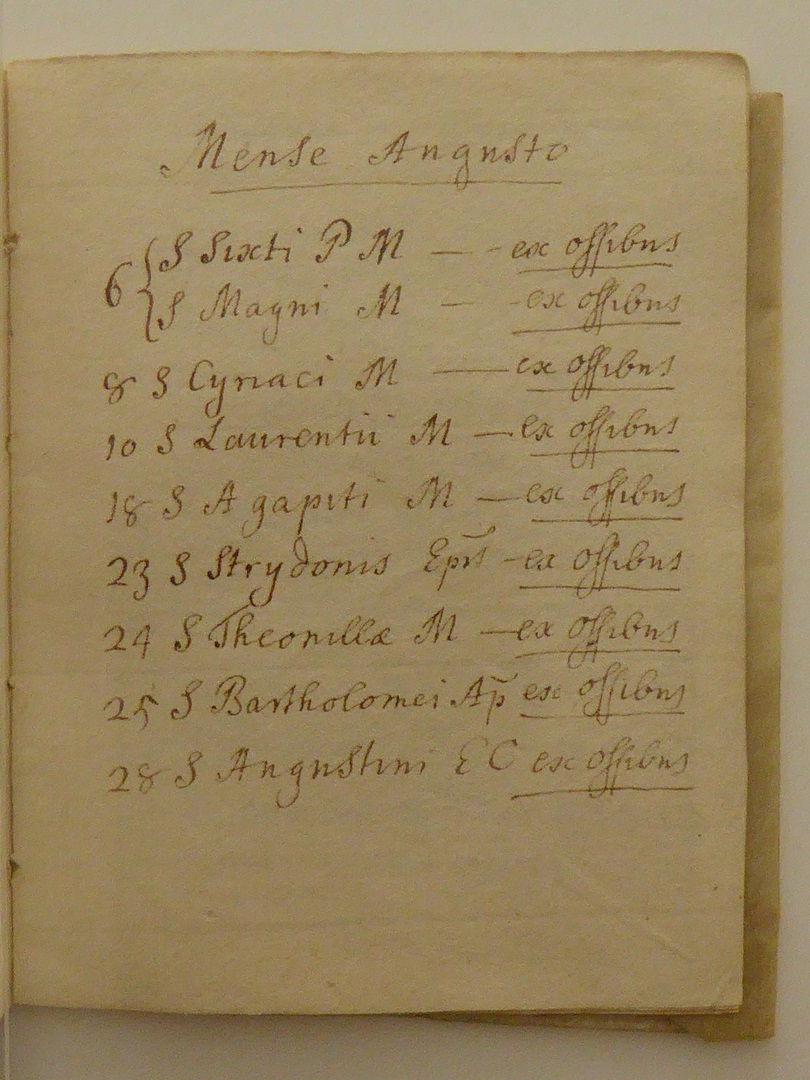 Mense Augusto
6 { S Sixti P M — - ex ossibus
S Magni M — - ex ossibus
8 S Cyriaci M — ex ossibus
10 S Laurentii M — ex ossibus
18 S Agapiti M — ex ossibus
23 S Strydonis Epis - ex ossibus
24 S Theonillæ M — ex ossibus
25 S Bartholomei Ap̄ ex ossibus
28 S Augustini E C ex ossibus